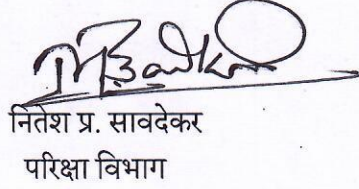 नितेश प्र. सावदेकर
परिक्षा विभाग